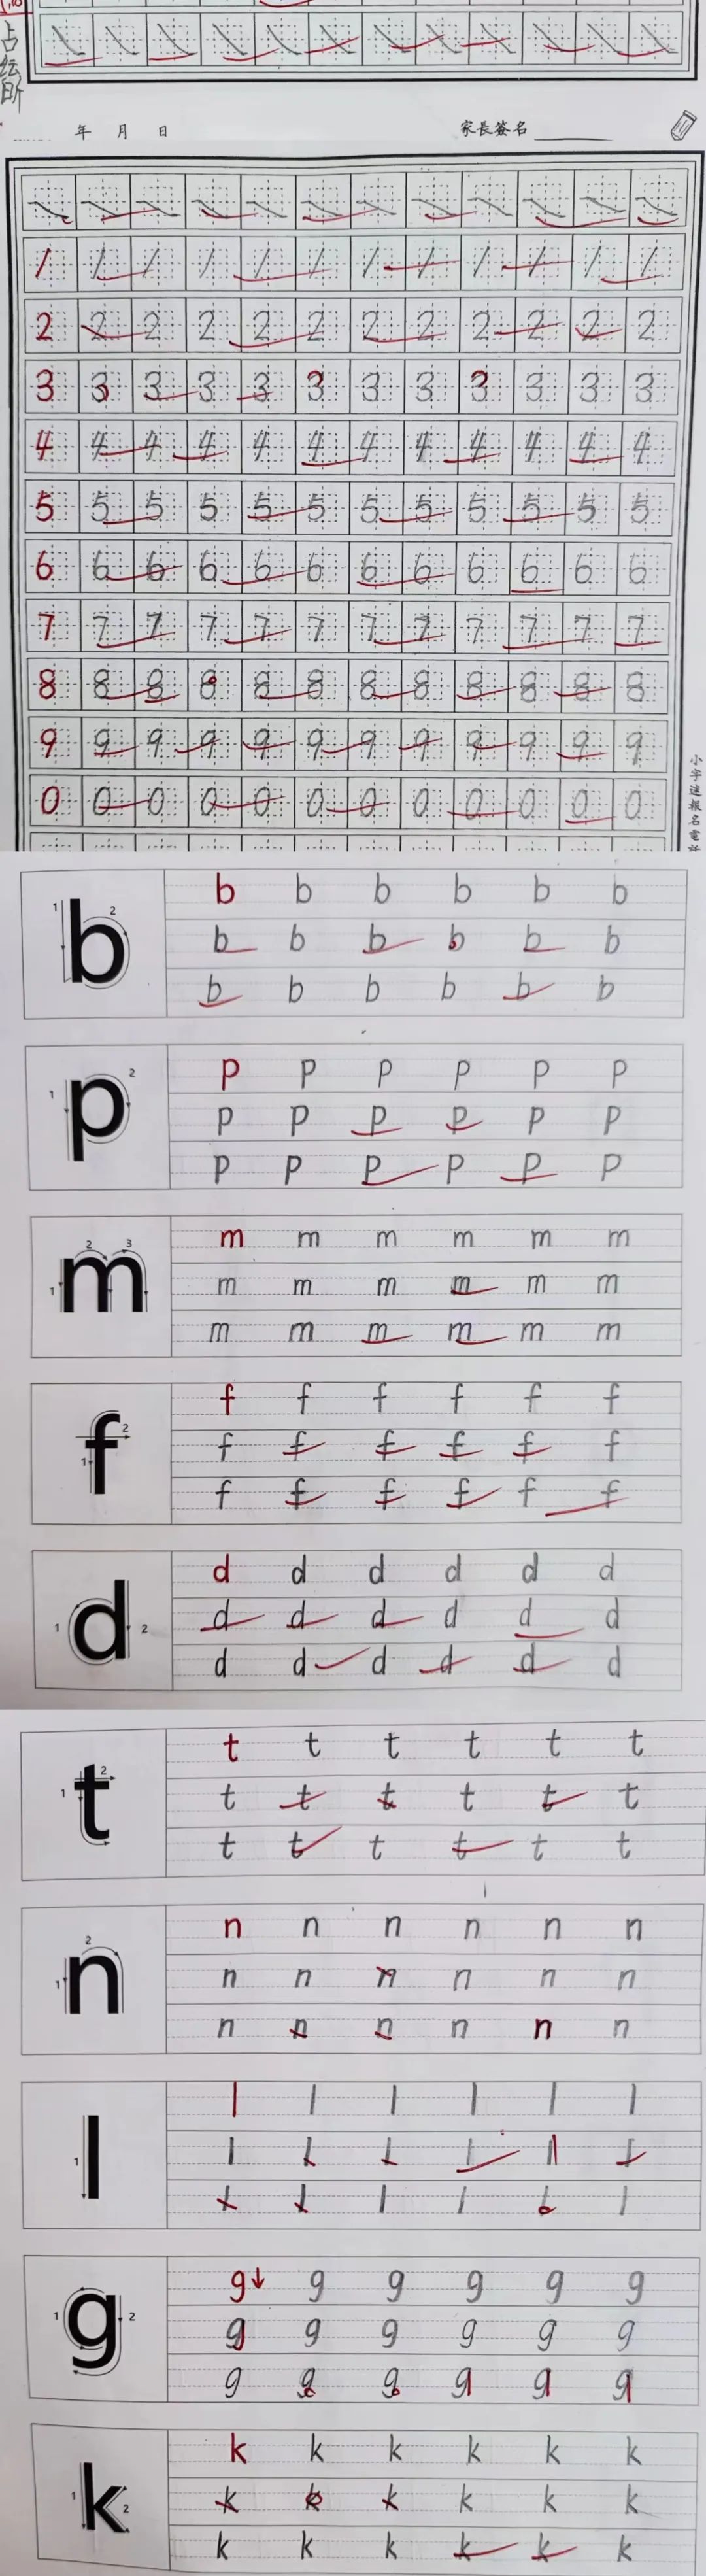 年 月 日 家長簽名
1 1 1 1 1 1 1 1 1 1 1 1
2 2 2 2 2 2 2 2 2 2 2 2
3 3 3 3 3 3 3 3 3 3 3 3
4 4 4 4 4 4 4 4 4 4 4 4
5 5 5 5 5 5 5 5 5 5 5 5
6 6 6 6 6 6 6 6 6 6 6 6
7 7 7 7 7 7 7 7 7 7 7 7
8 8 8 8 8 8 8 8 8 8 8 8
9 9 9 9 9 9 9 9 9 9 9 9
0 0 0 0 0 0 0 0 0 0 0 0
小字迷報名電
1 b 2
b b b b b b
b b b b b b
b b b b b b
1 p 2
p p p p p p
p p p p p p
p p p p p p
1 m 2 3
m m m m m m
m m m m m m
m m m m m m
1 f 2
f f f f f f
f f f f f f
f f f f f f
1 d 2
d d d d d d
d d d d d d
d d d d d d
1 t 2
t t t t t t
t t t t t t
t t t t t t
1 n 2
n n n n n n
n n n n n n
n n n n n n
1 l
l l l l l l
l l l l l l
l l l l l l
1 g 2
g↓ g g g g g
g g g g g g
g g g g g g
1 k 2
k k k k k k
k k k k k k
k k k k k k